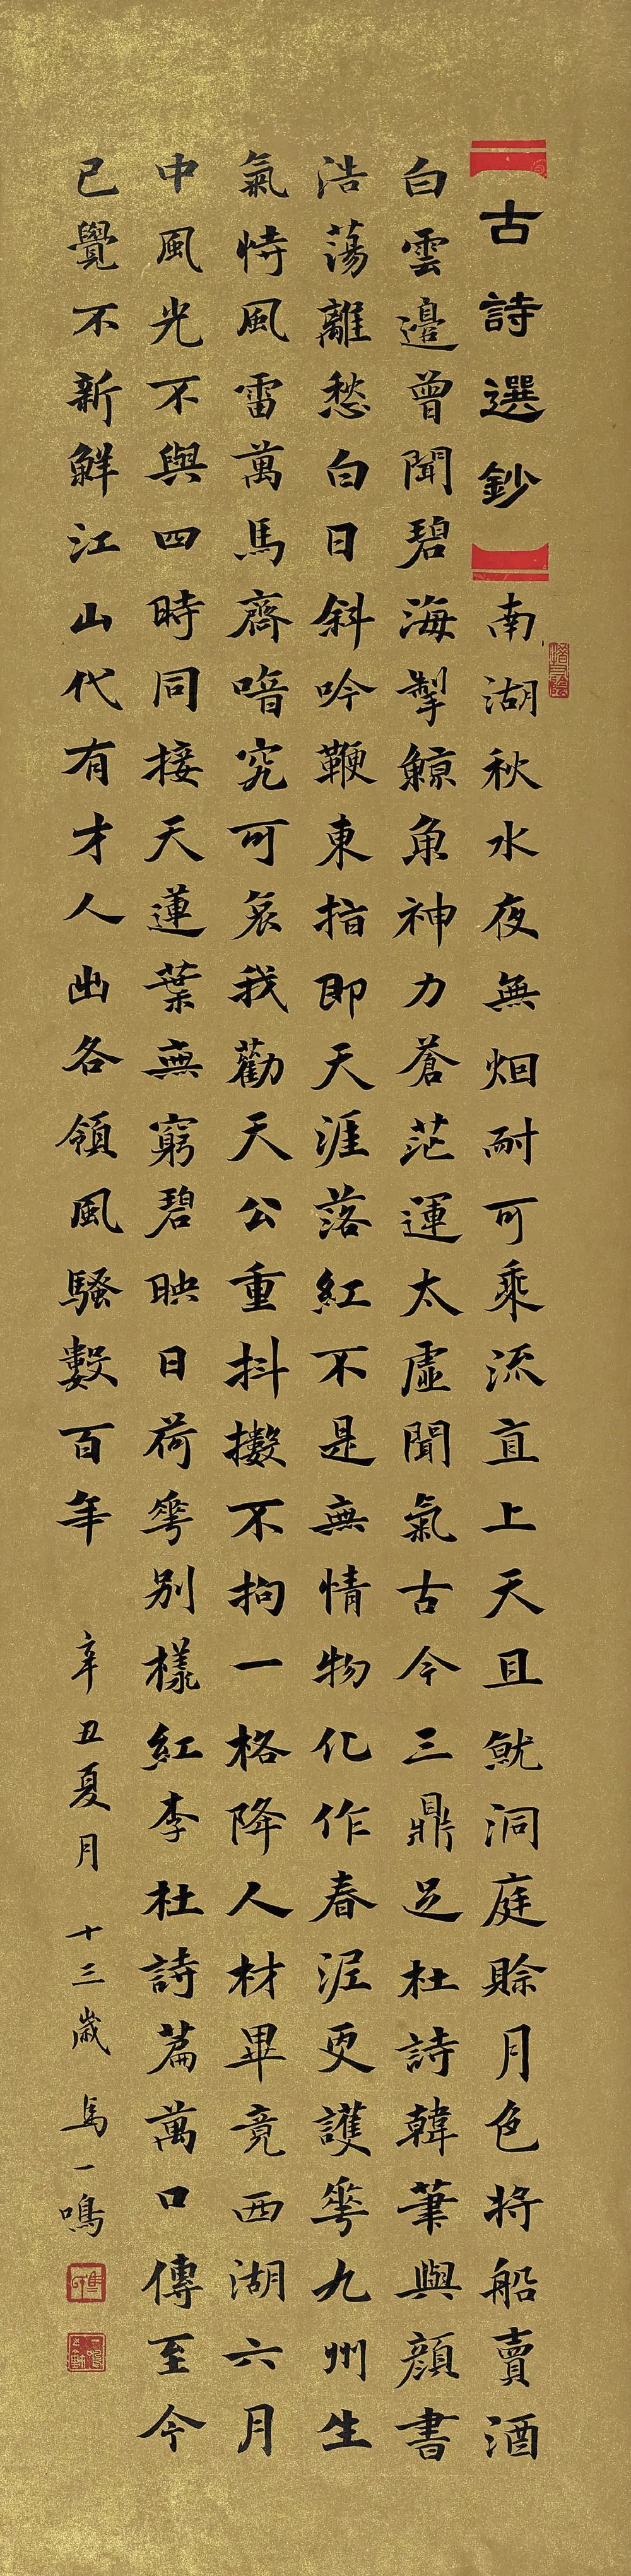 古詩選鈔 南湖秋水夜無烟耐可乘流直上天且就洞庭賒月色將船賣酒
白雲邊曾聞碧海掣鯨魚神力蒼茫運太虛聞氣古今三鼎足杜詩韓筆與顏書
浩蕩離愁白日斜吟鞭東指即天涯落紅不是無情物化作春泥更護花九州生
氣恃風雷萬馬齊喑究可哀我勸天公重抖擻不拘一格降人材畢竟西湖六月
中風光不與四時同接天蓮葉無窮碧映日荷花別樣紅李杜詩篇萬口傳至今
已覺不新鮮江山代有才人出各領風騷數百年
辛丑夏月 十三歲 馬一鳴